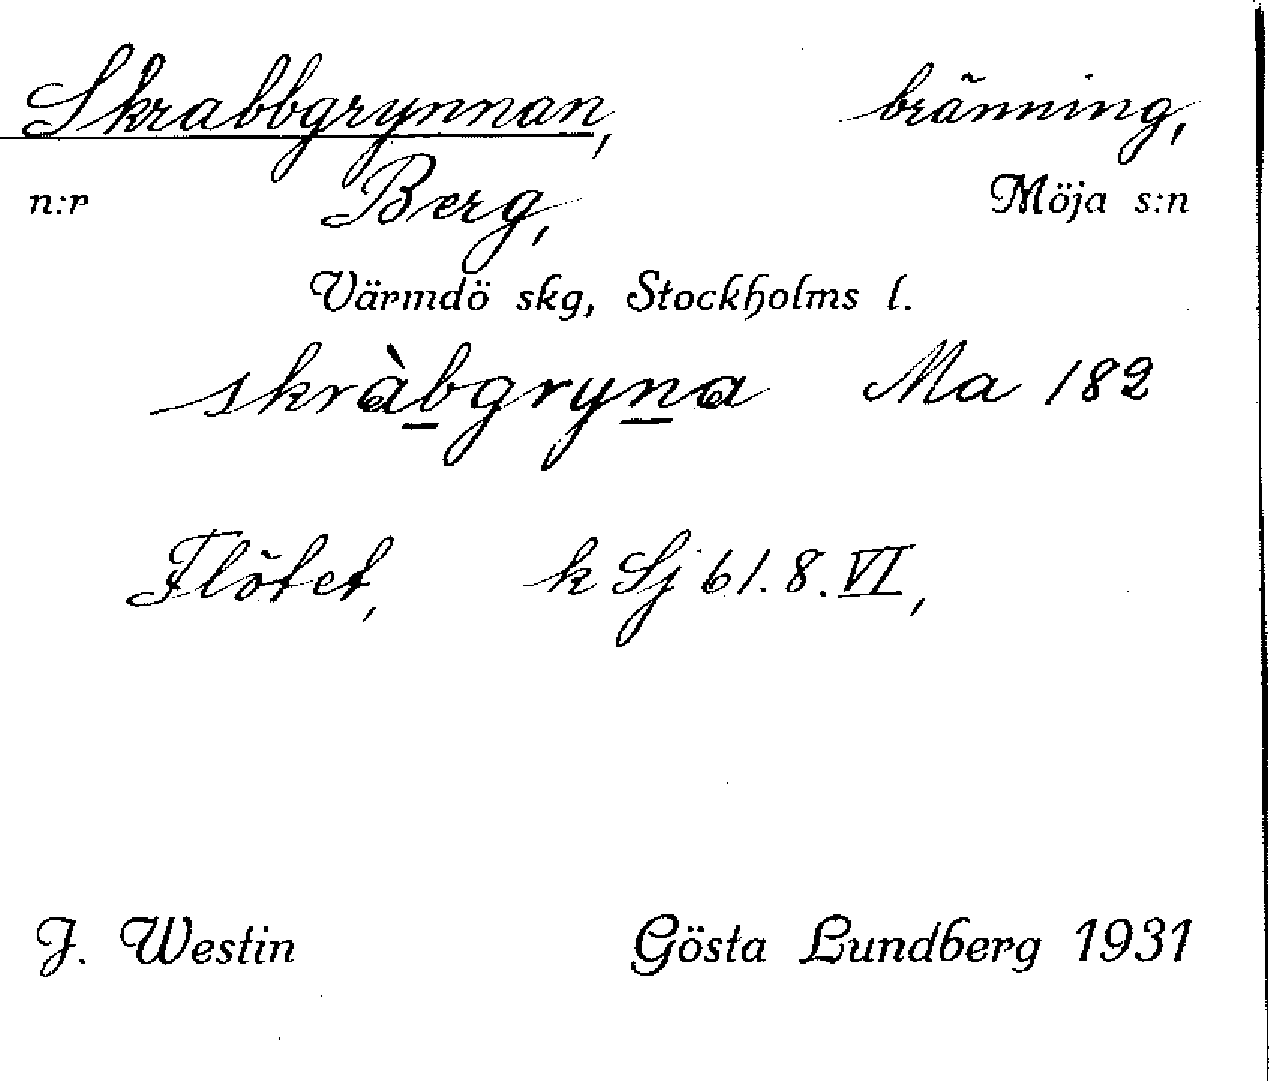 Skrabbgrynnan, bränning,
n:r Berg, Möja s:n
Värmdö skg, Stockholms l.
skràbgryna Ma 182
Flötet, k Sj 61.8.VI,
J. Westin Gösta Lundberg 1931